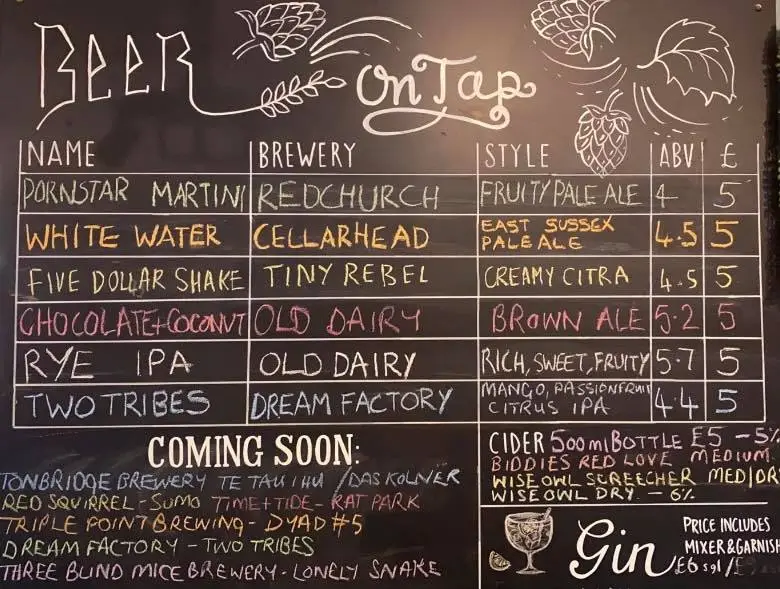 BEER on Tap
NAME BREWERY STYLE ABV £
PORNSTAR MARTINI REDCHURCH FRUITY PALE ALE 4 5
WHITE WATER CELLARHEAD EAST SUSSEX PALE ALE 4.5 5
FIVE DOLLAR SHAKE TINY REBEL CREAMY CITRA 4.5 5
CHOCOLATE+COCONUT OLD DAIRY BROWN ALE 5.2 5
RYE IPA OLD DAIRY RICH, SWEET, FRUITY 5.7 5
TWO TRIBES DREAM FACTORY MANGO, PASSIONFRUIT CITRUS IPA 4.4 5
COMING SOON:
TONBRIDGE BREWERY TE TAU IHU / DAS KOLNER
RED SQUIRREL - SUMO TIME+TIDE - RAT PARK
TRIPLE POINT BREWING - DYAD #5
DREAM FACTORY - TWO TRIBES
THREE BLIND MICE BREWERY - LONELY SNAKE
CIDER 500ml BOTTLE £5 - 5%
BIDDIES RED LOVE MEDIUM
WISE OWL SCREECHER MED/DR
WISE OWL DRY - 6%
Gin
PRICE INCLUDES
MIXER & GARNISH
£6 sgl /